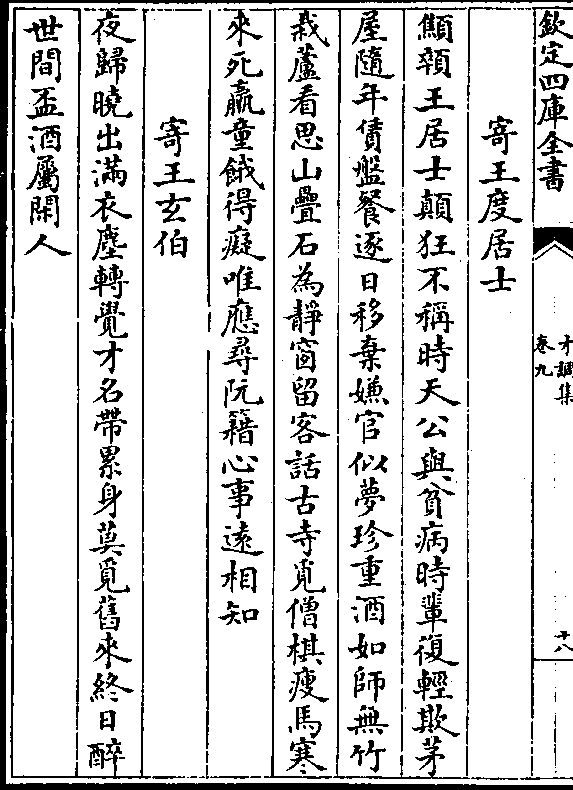 欽定四庫全書
才調集
卷九
十八
寄王度居士
顦顇王居士顛狂不稱時天公與貧病時輩復輕欺茅
屋隨年賃盤餐逐日移棄嫌官似夢珍重酒如師無竹
栽蘆看思山疊石為靜窗留客話古寺覓僧棋瘦馬寒
來死羸童餓得癡唯應尋阮籍心事遠相知
寄王玄伯
夜歸曉出滿衣塵轉覺才名帶累身莫覓舊來終日醉
世間盃酒屬閑人